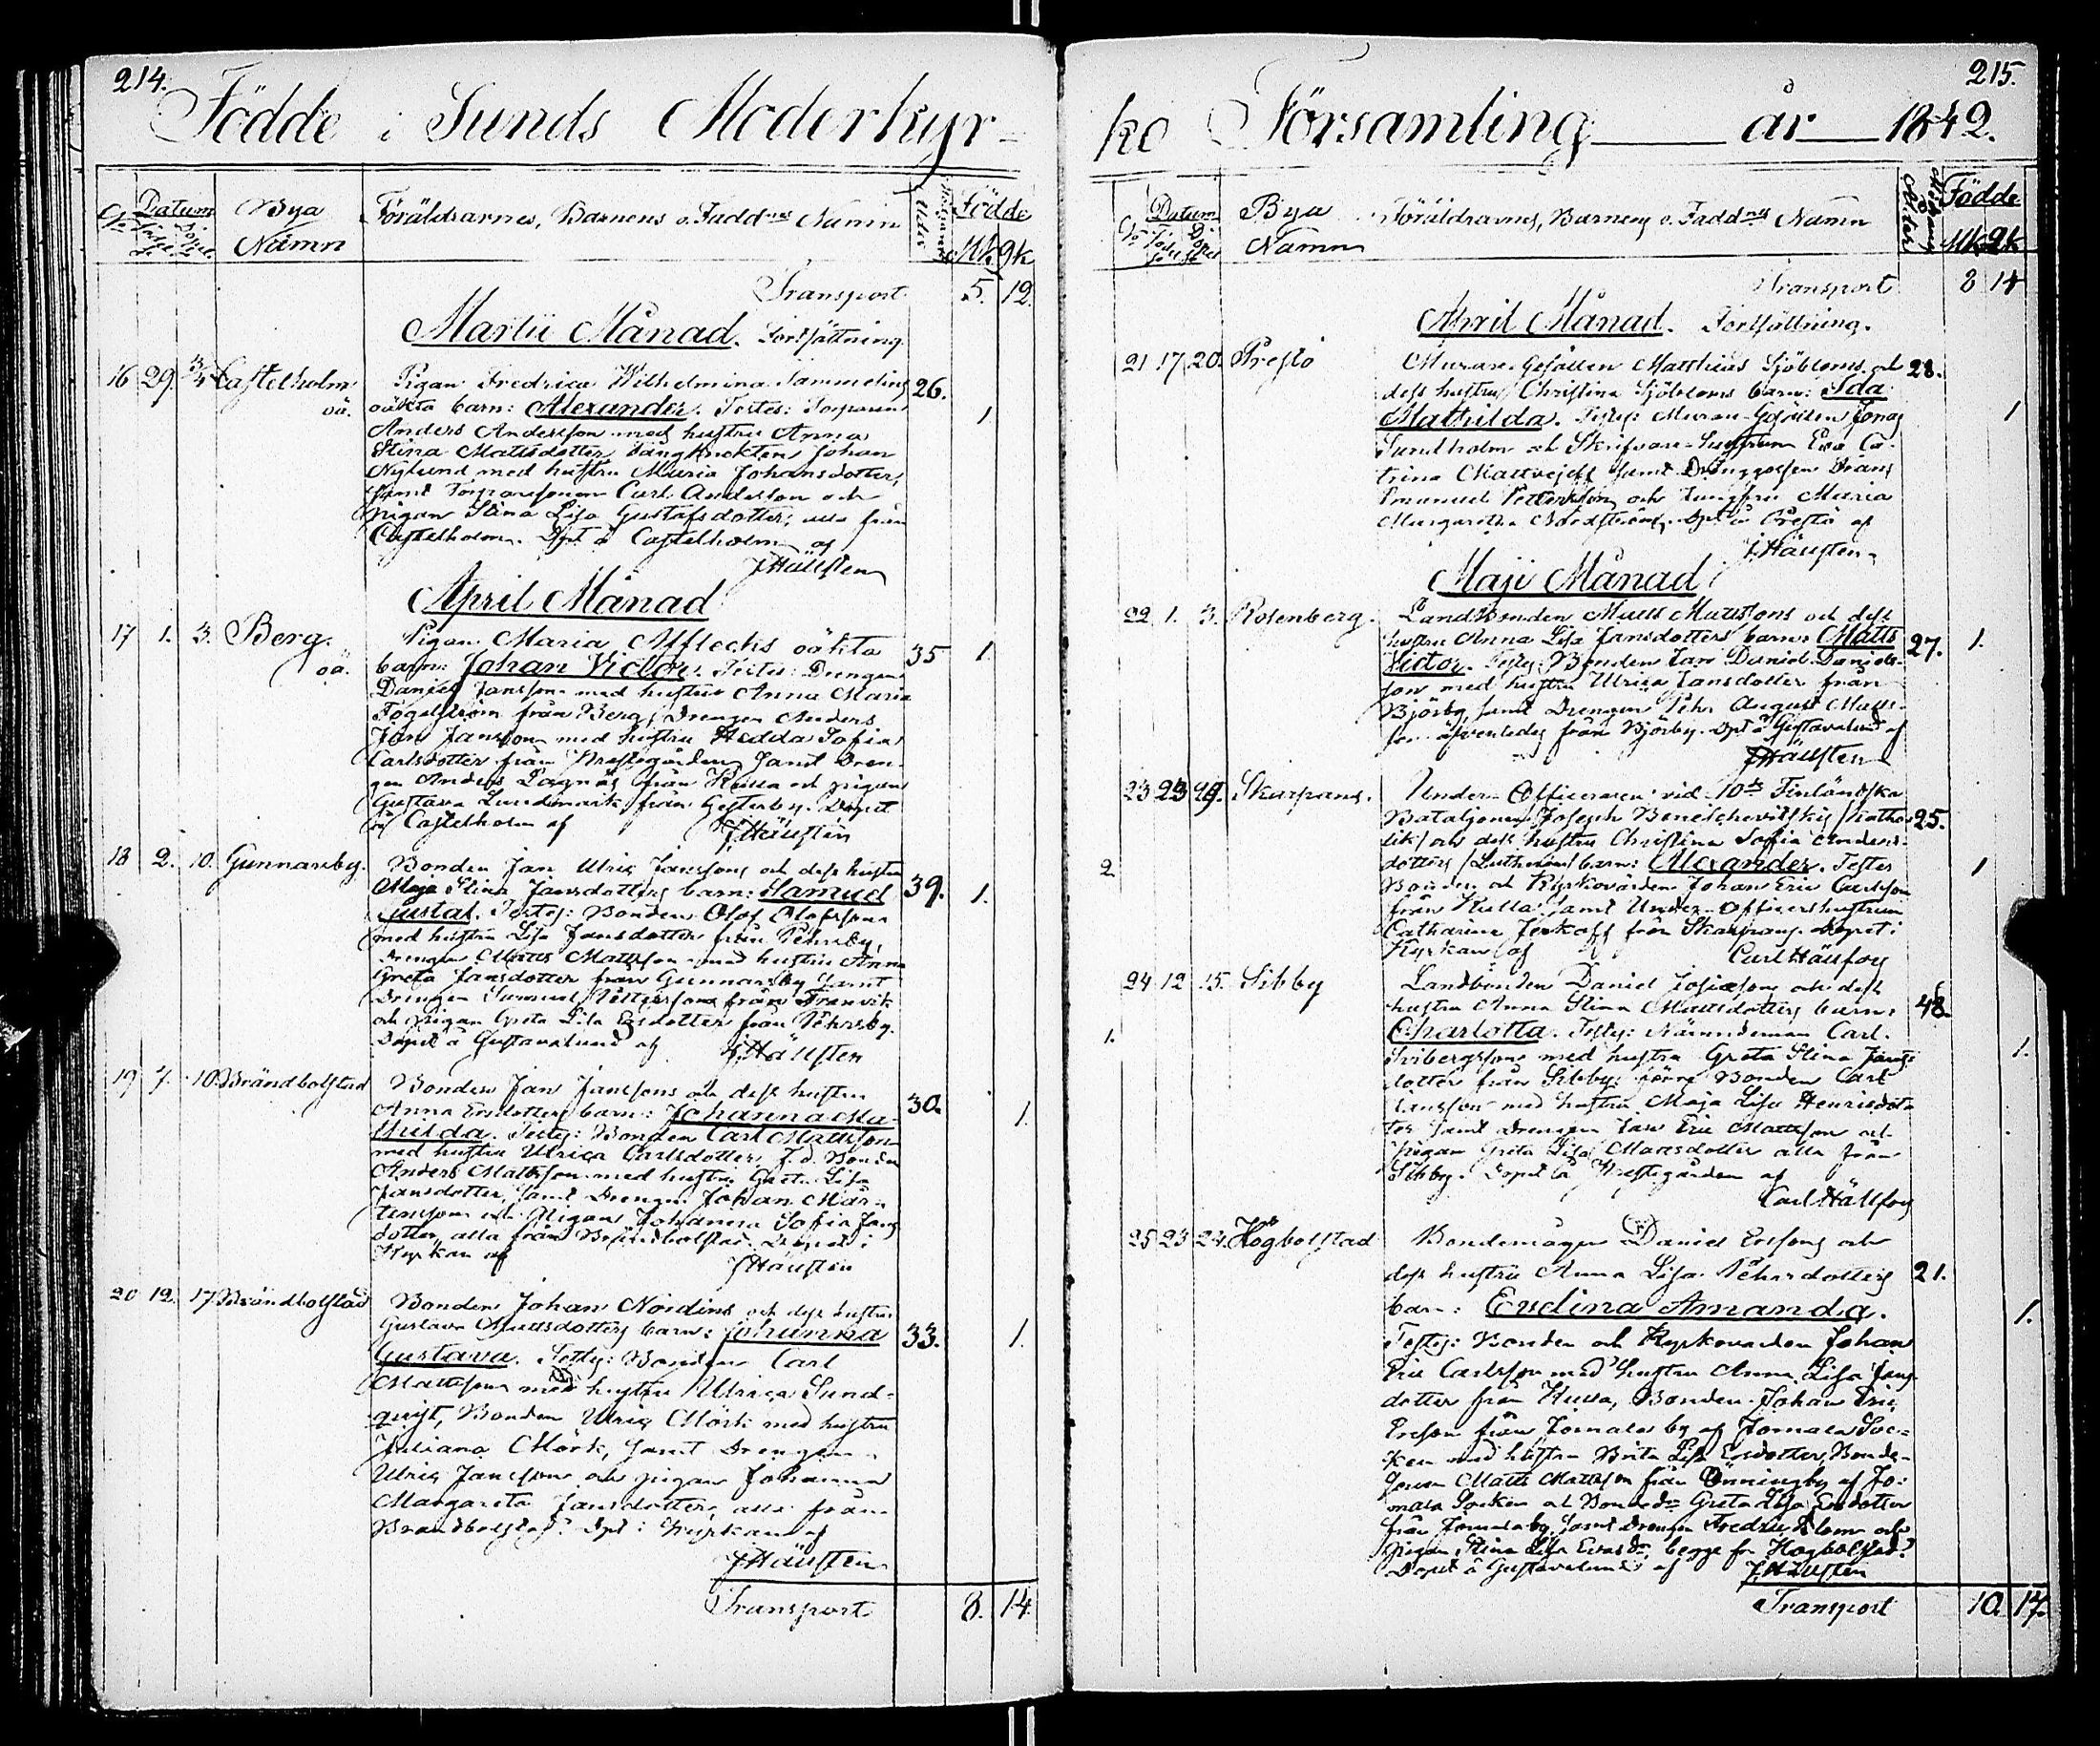 214.
Födde i Sunds Moderkyr-
No Datum Bya Namn Föräldrarnes, Barnens o. Faddnes Namn Ålder Födde
Mk Qk
Transport 5. 12.
Martii Månad. Fortsättning
16 29. 3/4 Castelholm Pigan Fredrica Wilhelmina Sammelins 26.
oä. oäkta barn: Alexander. Testes: Torparen 1
Anders Andersson med hustru Anna
Stina Mattsdotter, Johan
Nylund med hustru Maria Johansdotter,
samt Torparesonen Carl Andersson och
pigan Stina Lisa Gustafsdotter, alla från
Castelholm. Dpt å Castelholm af
J Hällsten
April Månad
17 1. 3. Berg. Pigan Maria Afflecks oäkta 35 1.
oä. barn: Johan Victor. Testes: Drengen
Daniel Jansson med hustru Anna Maria
Fogelström från Berg, Drengen Anders
Jan Jansson med hustru Hedda Sofia
Carlsdotter från Prestegården samt Dren-
gen Anders från Kulla och pigan
Gustava Lundsmark från Gesterby. Döpt
å Castelholm af J Hällsten
18 2. 10. Gunnarsby. Bonden Jan Ulric Janssons och dess hustru
Maja Stina Jansdotters barn: Samuel 39. 1.
Gustaf. Testes: Bonden Olof Olofsson
med hustru Lisa Jansdotter från Pehrsby,
Drengen Matts Mattsson med hustru Anna
Greta Jansdotter från Gunnarsby samt
Drengen Samuel från Tranvik
och pigan Greta Lisa Ersdotter från Pehrsby.
Döpt å Gustavalund af J Hällsten
19 7. 10. Brändbolstad Bonden Jan Janssons och dess hustru
Anna Ersdotters barn: Johanna Ma- 30. 1.
thilda. Testes: Bonden Carl Mattsson
med hustru Ulrica Carlsdotter, f.d. Bonden
Anders Mattsson med hustru Greta Lisa
Jansdotter, samt Drengen Johan Mår-
tensson och Pigan Johanna Sofia Jans
dotter, alla från Brändbolstad. Döpt i
Kyrkan af J Hällsten
20 12. 17. Brändbolstad Bonden Johan Nordins och dess hustru
Gustava Mattsdotters barn: Johanna 33. 1.
Gustava. Testes: Bonden Carl
Mattsson med hustru Ulrica Sund-
qvist, Bonden Ulric Mörk med hustru
Juliana Mörk, samt Drengen
Ulric Jansson och pigan Johanna
Margareta Jansdotter, alla från
Brändbolstad. Dpt i Kyrkan af
J Hällsten
Transport 8. 14.
215.
ko Församling år 1842.
No Datum Bya Namn Föräldrarnes, Barnens o. Faddnes Namn Ålder Födde
Mk Qk
Transport 8 14
April Månad. Fortsättning.
21 17 20. Prestö Murare Gesällen Matthias Sjöbloms och 28.
dess hustru Christina Sjöbloms barn: Ida
Mathilda. Testes: Murare-Gesällen Jonas 1
Sundholm och Skrifvare-hustrun Eva Ca-
trina Mattvejeff samt Drenggossen Frans
Emanuel Pettersson och Jungfru Maria
Margaretha Nordström. Dpt å Prestö af
J. Hällsten
Maji Månad
22 1. 3. Rosenberg. Landbonden Matts Mattssons och dess
hustru Anna Lisa Jansdotters barn: Matts 27. 1.
Victor. Testes: Bonden Jan Daniel Daniels-
son med hustru Ulrica Jansdotter från
Björby, samt Drengen Pehr August Matts-
son äfvenledes från Björby. Dpt å Gustavalund af
J Hällsten
23 23 29. Skarpans. Under-Officeraren vid 10de Finländska
Bataljonen Joseph Benischevitskij /Katho- 25.
lik/ och dess hustru Christina Sofia Anders-
2 dotters /Lutheran/ barn: Alexander. Testes 1
Bonden och Kyrkovärden Johan Eric Carlsson
från Kulla samt Under-Officers hustrun
Catharina från Skarpans. Döpt i
Kyrkan af Carl Hällfors
24 12 15. Sibby Landbonden Daniel Josefssons och dess
hustru Anna Stina Mattsdotters barn: 48.
1. Charlotta. Testes: Nämndeman Carl 1.
Svibergsson med hustru Greta Stina Jans-
dotter från Sibby, förre Bonden Carl
Jansson med hustru Maja Lisa Henricsdot-
ter samt Drengen Jan Eric Mattsson och
pigan Greta Lisa Mattsdotter alla från
Sibby. Döpt å Prestegården af
Carl Hällfors
25 23 24. Högbolstad Bondemågen Daniel Ersons och
dess hustru Anna Lisa Pehrsdotters 21.
barn: Evelina Amanda. 1.
Testes: Bonden och Kyrkovärden Johan
Eric Carlsson med hustru Anna Lisa Jans-
dotter från Kulla, Bonden Johan Eric
Ericson från Jomala by af Jomala Soc-
ken med hustru Brita Lisa Ersdotter, Bonde-
sonen Matts Mattsson från Önningby af Jo-
mala Socken och Bonded:r Greta Lisa Ersdotter
från Jomalaby samt Drengen Fredric Blom och
pigan Stina Lisa Ersd:r, begge fr Högbolstad.
Döpt å Gustavalund af J Hällsten
Transport 10. 17.